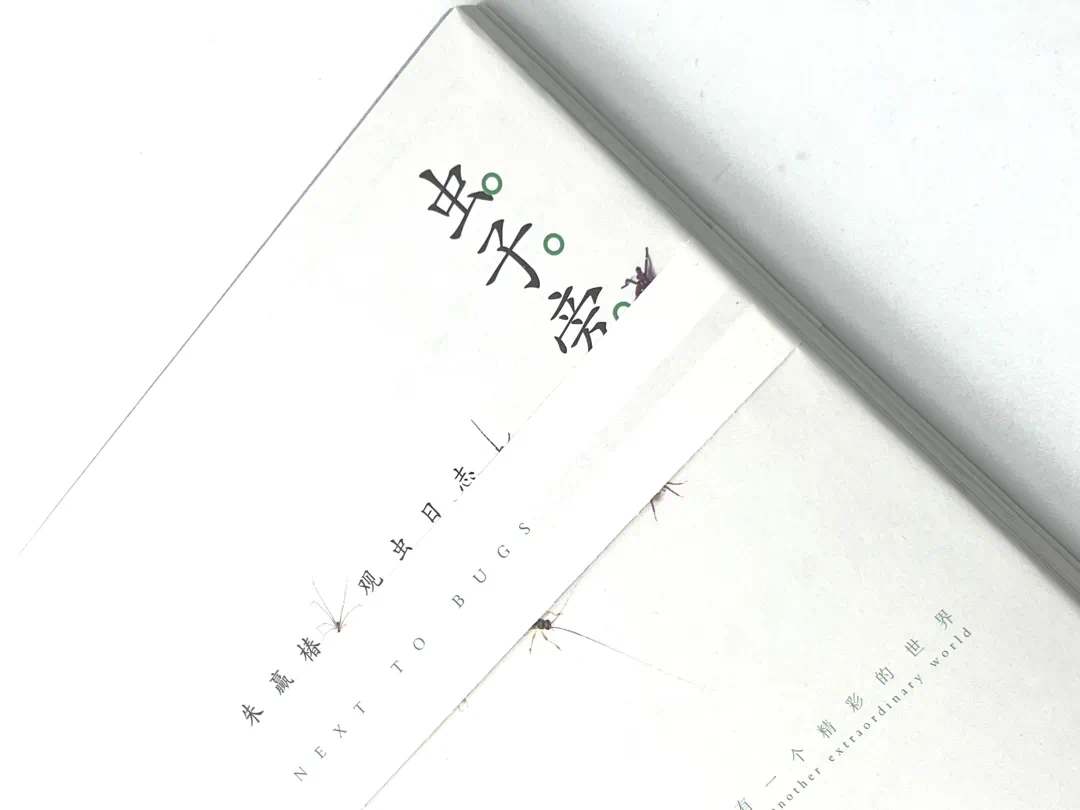 虫子旁
朱赢椿 观虫日志
NEXT TO BUGS
有一个精彩的世界
another extraordinary world